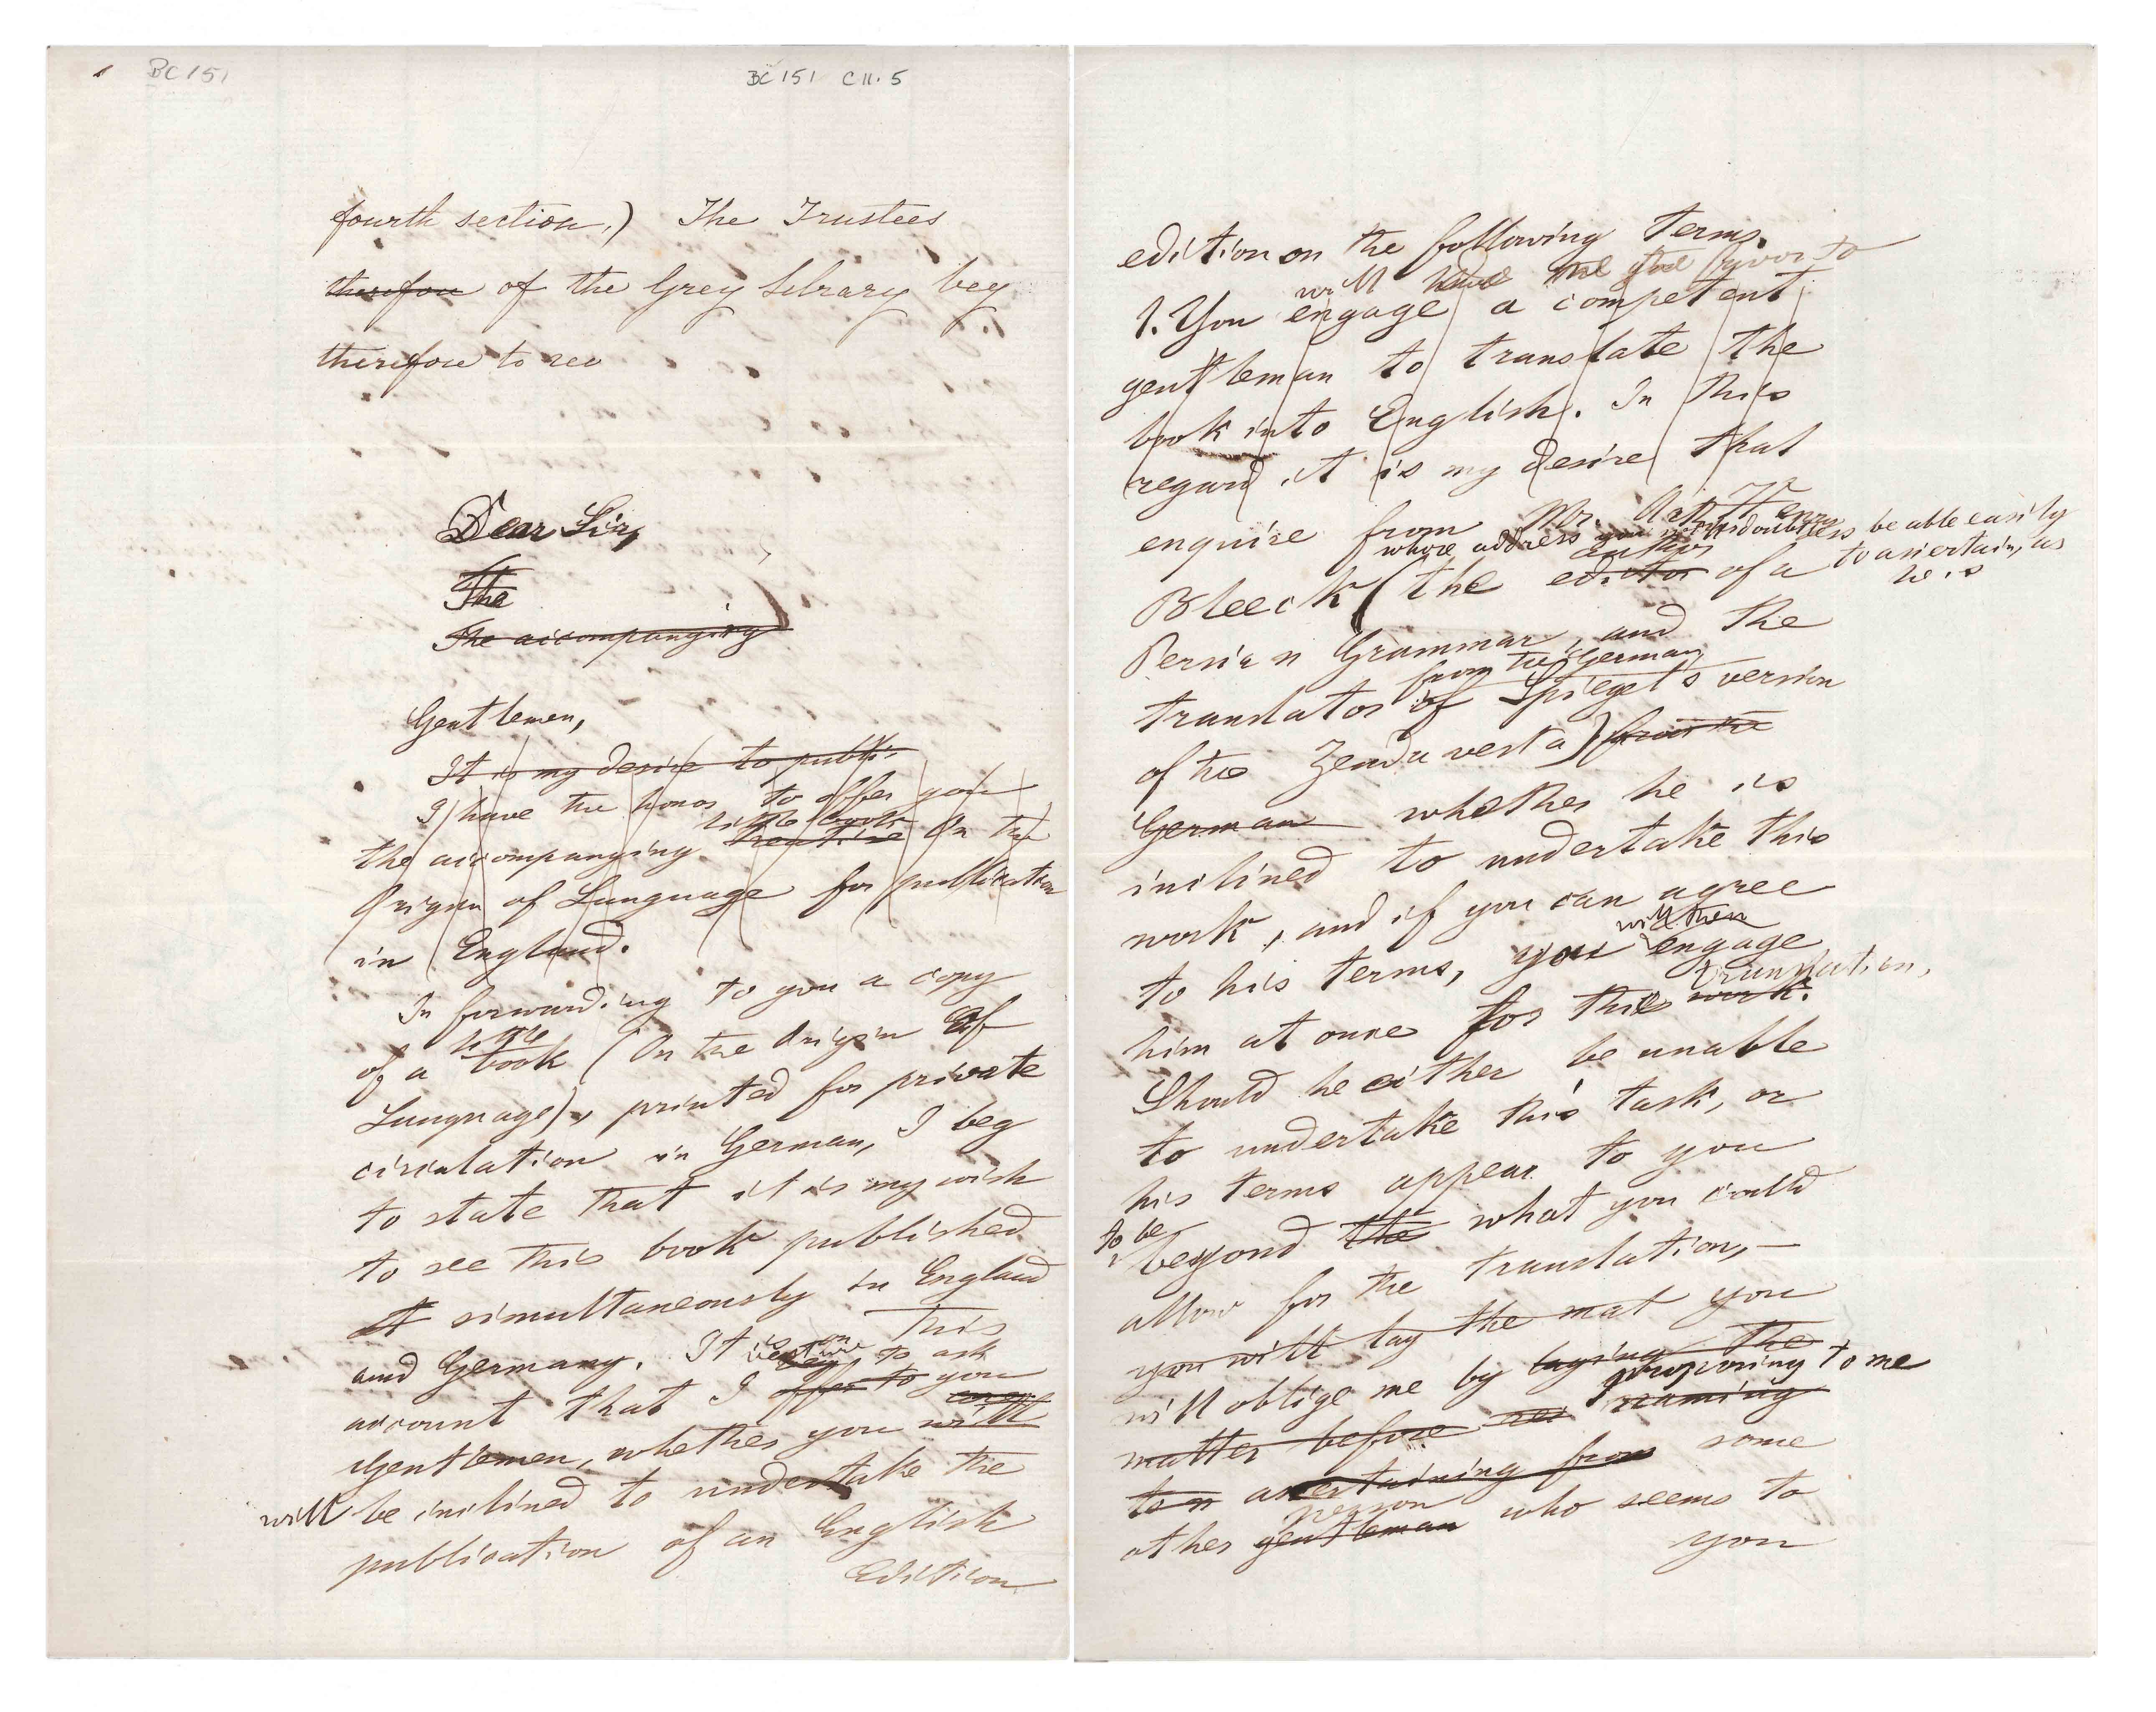 BC 151
BC 151 C11.5
fourth section.) The Trustees
therefore of the Grey Library beg
therefore to rec
Dear Sir,
The
The accompanying
Gentlemen,
It is my desire to publi
I have the honor to offer you
little book
the accompanying treatise On the
Origin of Language for publication
in England.
In forwarding to you a copy
little
of a book (On the Origin of
Language), printed for private
circulation in German, I beg
to state that it is my wish
to see this book published
It simultaneously in England
and Germany. It is on this
venture
beg to ask
account that I offer to you
Gentlemen, whether you will
will be inclined to undertake the
publication of an English
Edition
edition on the following terms.
will have the favor to
1. You engage a competent
gentleman to translate the
book into English. In this
regard it is my desire that
enquire from Mr. Arth. Henry
whose address you will doubtless be able easily
to ascertain, as
he is
author
Bleeck (the editor of a
Persian Grammar, and the
from the German
translator of Spiegel's version
of the Zendavesta) from the
German whether he is
inclined to undertake this
work, and if you can agree
will then
to his terms, you engage
translation,
him at once for this work.
Should he either be unable
to undertake this task, or
his terms appear to you
to be
beyond the what you could
allow for the translation, —
you will lay the mat you
will oblige me by laying the
proposing to me
matter before me naming
to ascertaining from some
person
other gentleman who seems to
you